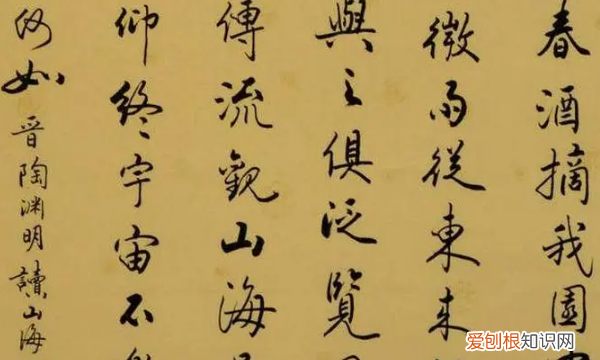 春酒摘我園
微雨從東来
與之俱泛覽
傳流觀山海
仰終宇宙不
何如
晋陶渊明讀山海
爱刨根知识网